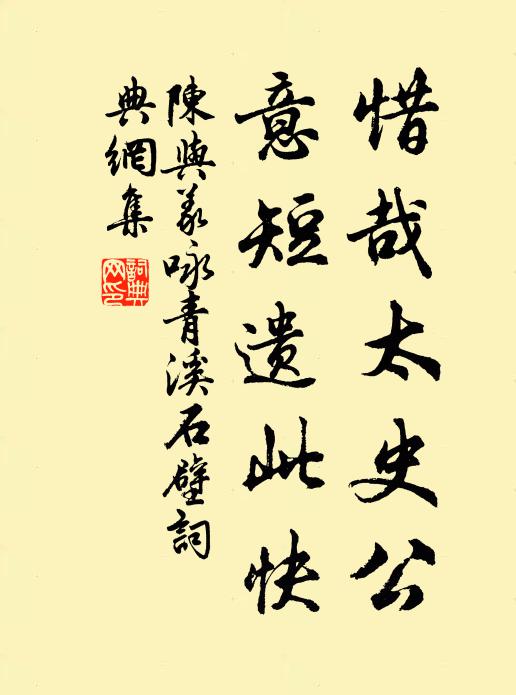 惜哉太史公
意短遗此快
陳與義咏青溪石壁詞
典網集
詞典
网印